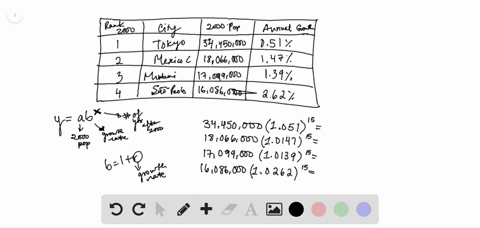 Rank 2000 City 2000 Pop Annual
1 Tokyo 34,450,000 0.51%
2 Mexico C 18,066,000 1.47%
3 17,099,000 1.39%
4 São Paulo 16,086,000 2.62%
y = ab^x → # of yrs after 2000
2000 pop growth rate
b = 1 + r
growth rate
34,450,000 (1.051)^15 =
18,066,000 (1.0147)^15 =
17,099,000 (1.0139)^15 =
16,086,000 (1.0262)^15 =